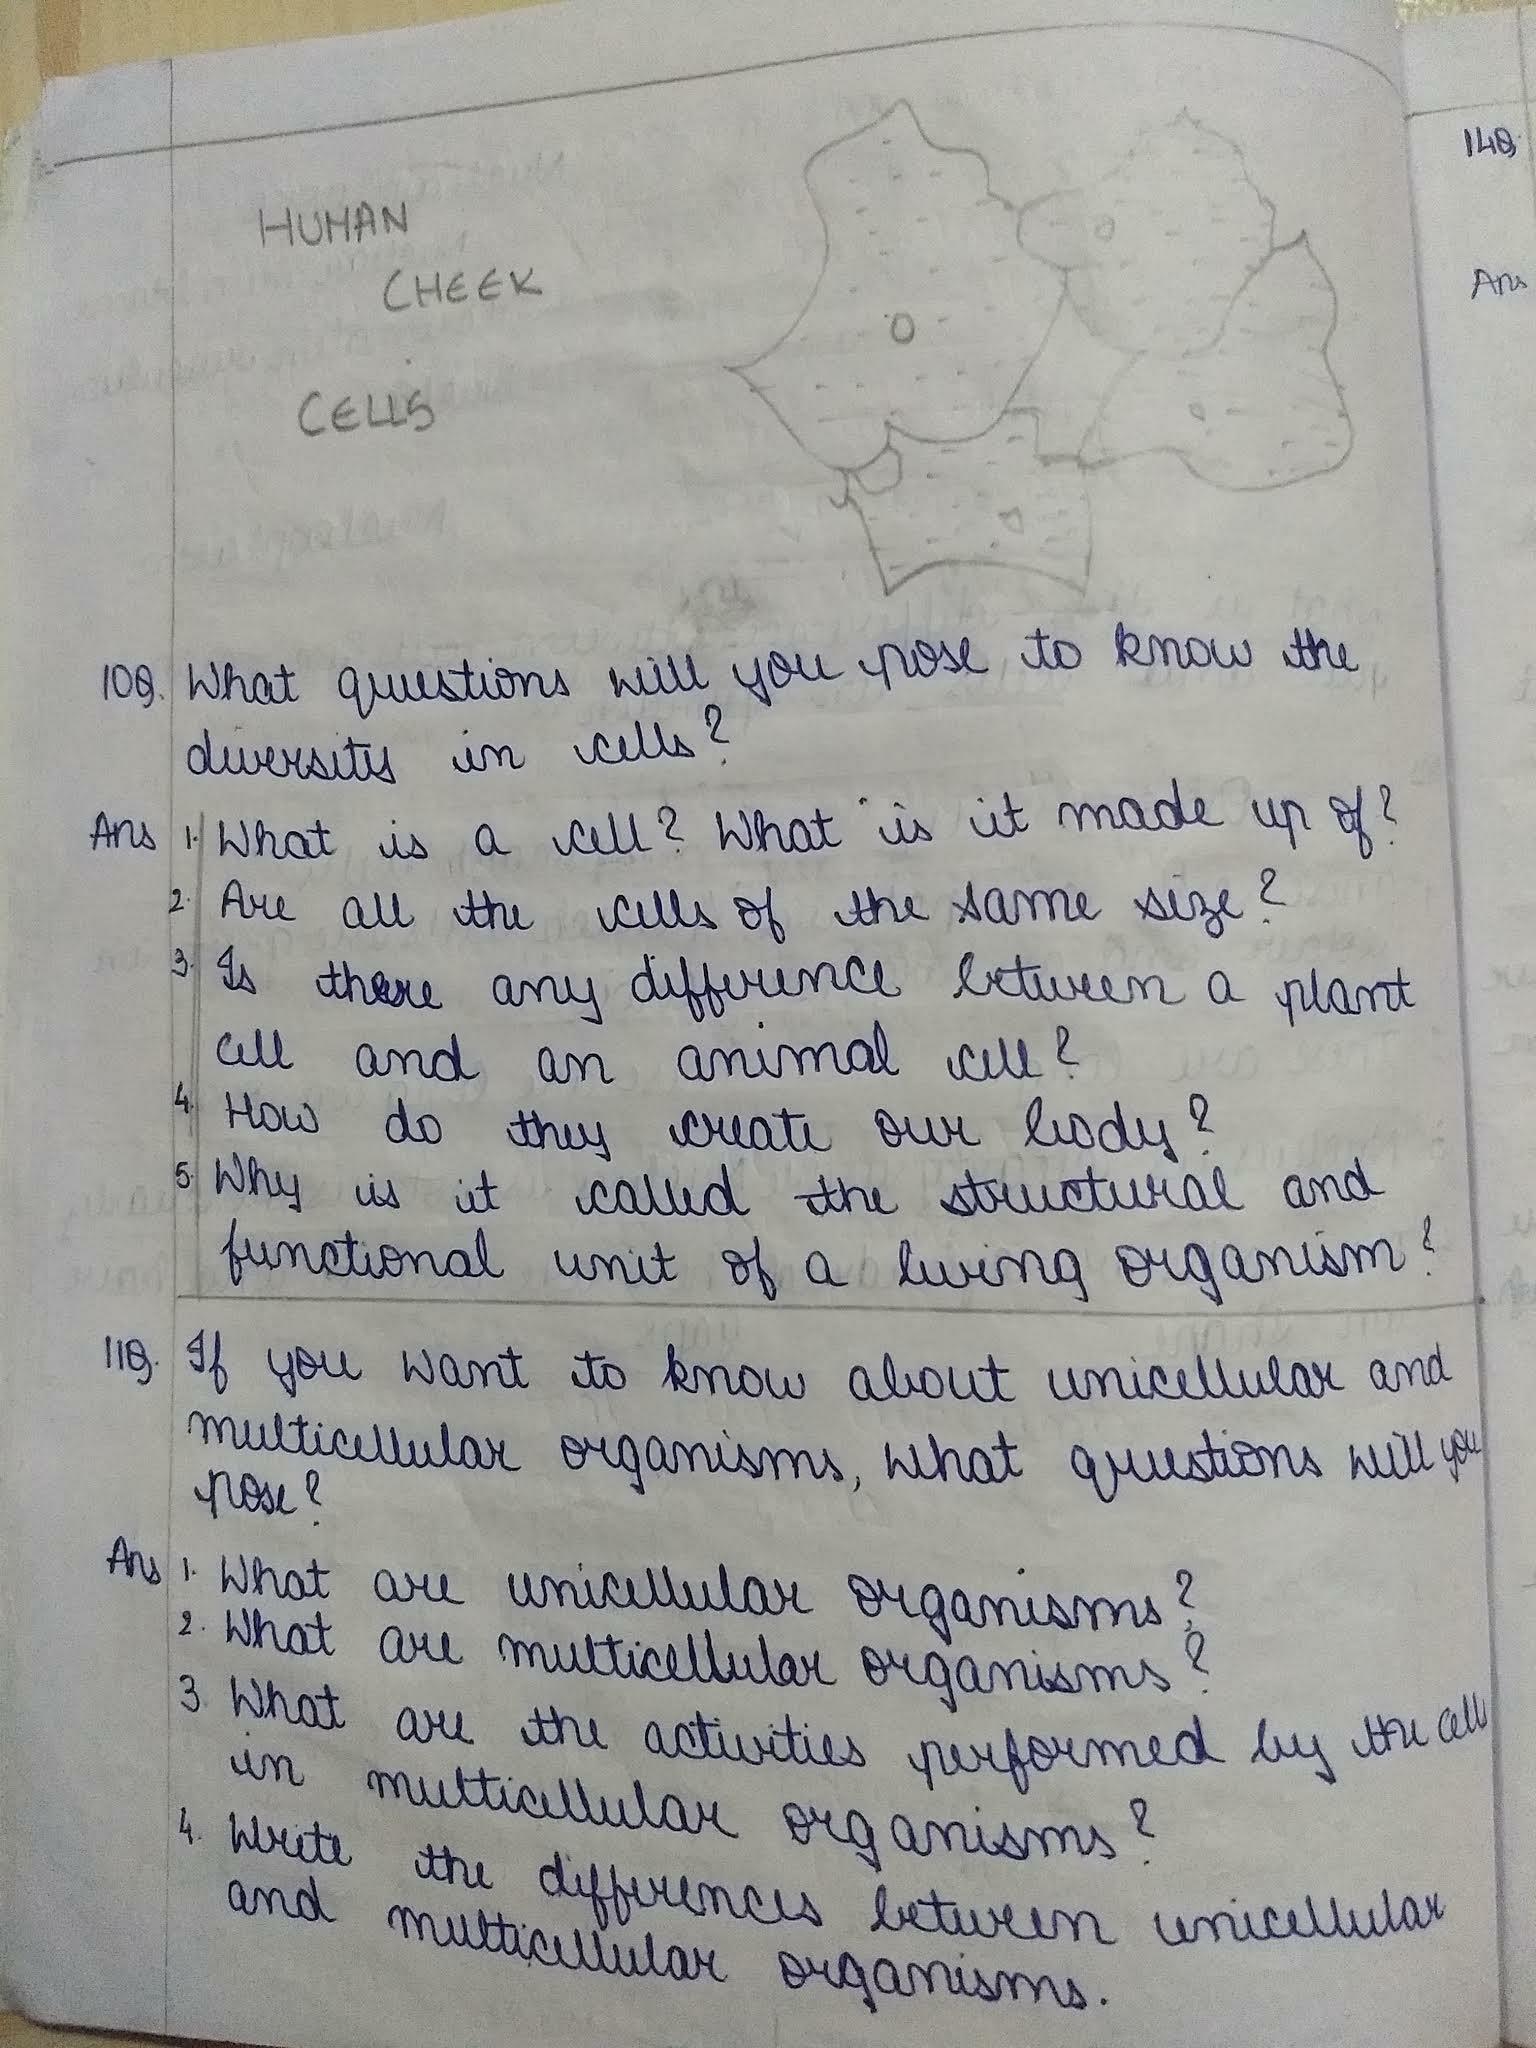 HUMAN
CHEEK
CELLS
10Q. What questions will you pose to know the
diversity in cells?
Ans 1. What is a cell? What is it made up of?
2. Are all the cells of the same size?
3. Is there any difference between a plant
cell and an animal cell?
4. How do they create our body?
5. Why is it called the structural and
functional unit of a living organism?
11Q. If you want to know about unicellular and
multicellular organisms, what questions will you
pose?
Ans 1. What are unicellular organisms?
2. What are multicellular organisms?
3 What are the activities performed by the cells
in multicellular organisms?
4. Write the differences between unicellular
and multicellular organisms.
14Q.
Ans